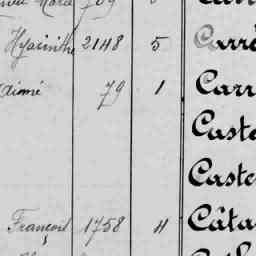 Hyacinthe 2148 5 Carré
Aimé 79 1 Carr
Caste
Caste
François 1758 4 Câta